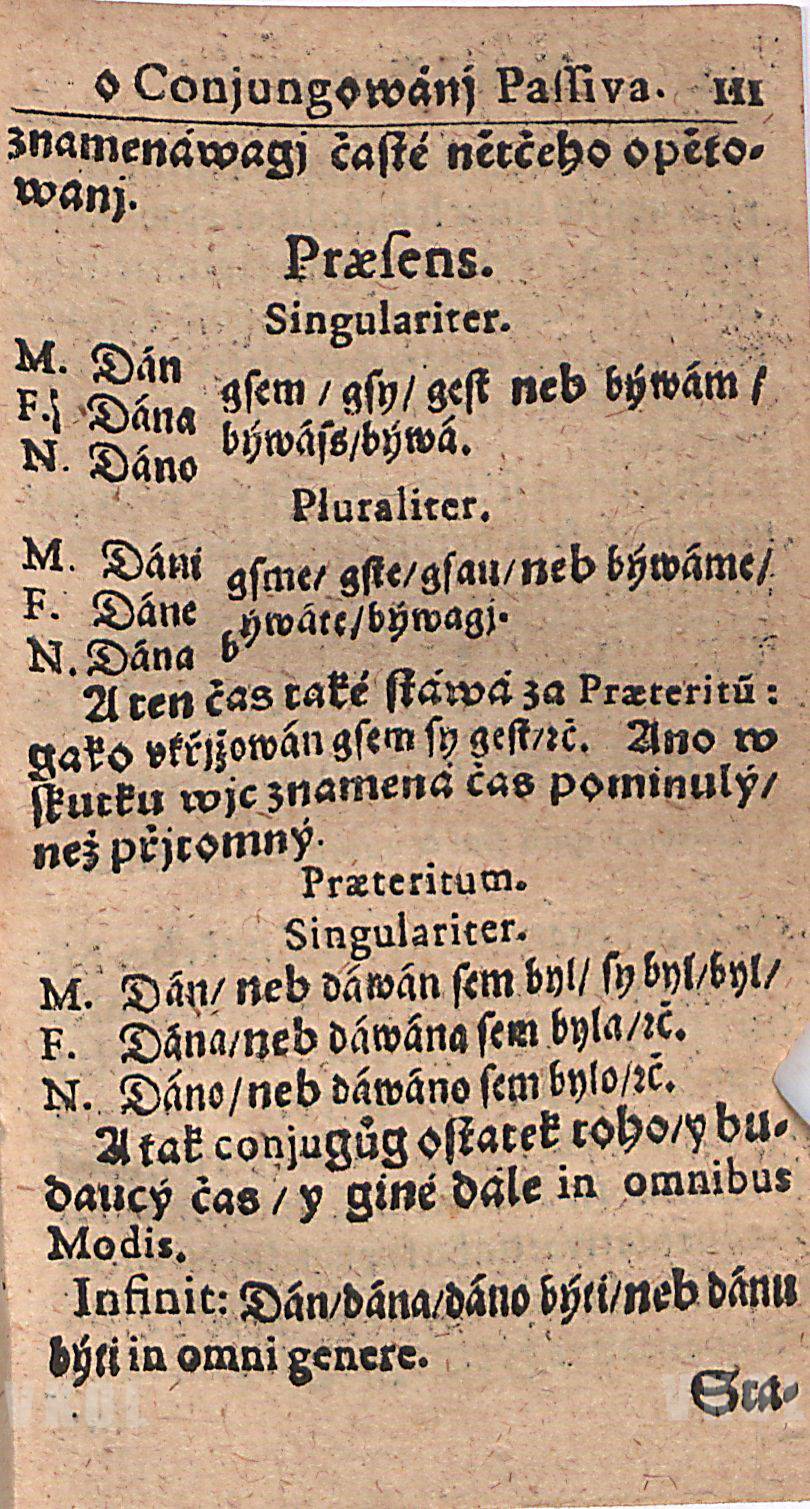 o Conjungowánj Paſſiva. 111
znamenáwagj čaſté nětčeho opěto-
wanj.
Præſens.
Singulariter.
M. Dán
F. Dána gſem / gſy / geſt neb býwám /
N. Dáno býwáſs / býwá.
Pluraliter.
M. Dáni gſme / gſte / gſau / neb býwáme /
F. Dáne býwáte / býwagj.
N. Dána
A ten čas také ſtáwá za Præteritū :
gako vkřjžowán gſem ſy geſt / ꝛč. Ano w
ſkutku wjc znamená čas pominulý /
než přjtomný.
Præteritum.
Singulariter.
M. Dán / neb dáwán ſem byl / ſy byl / byl /
F. Dána / neb dáwána ſem byla / ꝛč.
N. Dáno / neb dáwáno ſem bylo / ꝛč.
A tak conjugůg oſtatek toho / y bu-
daucý čas / y giné dále in omnibus
Modis.
Infinit: Dán / dána / dáno býti / neb dánu
býti in omni genere.
Sta-